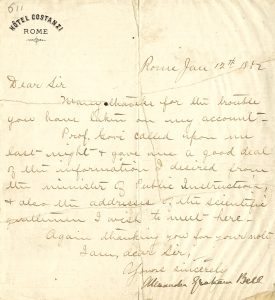 511
HÔTEL COSTANZI
ROME
Rome Jan 12th 1882
Dear Sir
Many thanks for the trouble
you have taken on my account -
Prof. Govi called upon me
last night & gave me a good deal
of the information I desired from
the minister of Public Instruction,
& also the addresses of the scientific
gentlemen I wish to meet here -
Again thanking you for your note
I am, dear Sir,
Yours sincerely
Alexander Graham Bell